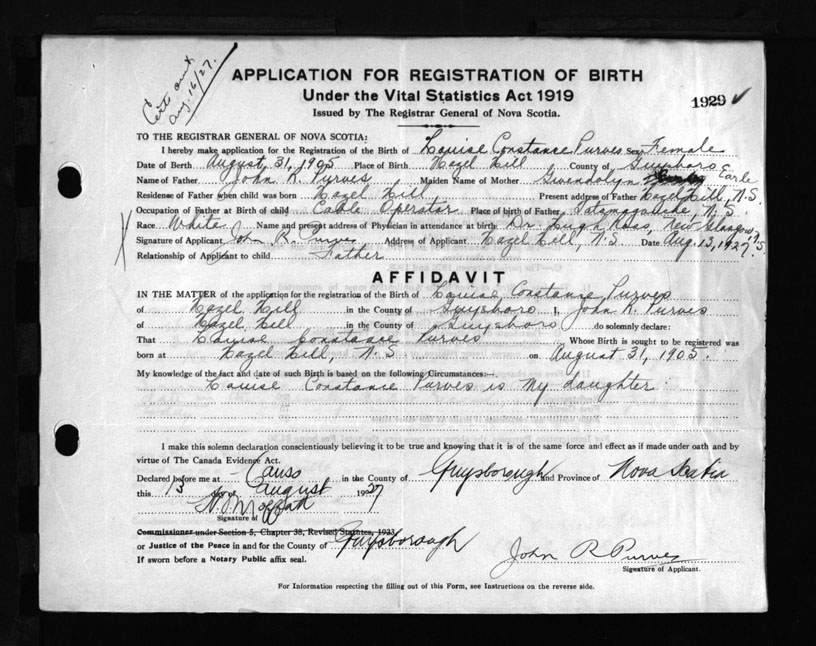 Certs sent
Aug. 16/27.
APPLICATION FOR REGISTRATION OF BIRTH
Under the Vital Statistics Act 1919
1929 ✓
Issued by The Registrar General of Nova Scotia.
TO THE REGISTRAR GENERAL OF NOVA SCOTIA:
I hereby make application for the Registration of the Birth of Louise Constance Purves Sex Female
Date of Birth August, 31, 1905 Place of Birth Hazel Hill County of Guysboro
Name of Father John R. Purves Maiden Name of Mother Gwendolyn Earle
Residence of Father when child was born Hazel Hill Present address of Father Hazel Hill, N.S.
Occupation of Father at Birth of child Cable Operator Place of birth of Father Tatamagouche, N.S.
Race White Name and present address of Physician in attendance at birth Dr. Hugh Ross, New Glasgow N.S.
Signature of Applicant John R. Purves Address of Applicant Hazel Hill, N.S Date Aug. 13, 1927
Relationship of Applicant to child Father
AFFIDAVIT
IN THE MATTER of the application for the registration of the Birth of Louise Constance Purves
of Hazel Hill in the County of Guysboro I, John R. Purves
of Hazel Hill in the County of Guysboro do solemnly declare:
That Louise Constance Purves Whose Birth is sought to be registered was
born at Hazel Hill, N.S on August 31, 1905.
My knowledge of the fact and date of such Birth is based on the following Circumstances:—
Louise Constance Purves is my daughter.
I make this solemn declaration conscientiously believing it to be true and knowing that it is of the same force and effect as if made under oath and by
virtue of The Canada Evidence Act.
Declared before me at Canso in the County of Guysborough and Province of Nova Scotia
this 13 day of August 1927
Signature of
Commissioner under Section 5, Chapter 38, Revised Statutes, 1923
or Justice of the Peace in and for the County of Guysborough
John R Purves
If sworn before a Notary Public affix seal.
Signature of Applicant.
For Information respecting the filling out of this Form, see Instructions on the reverse side.